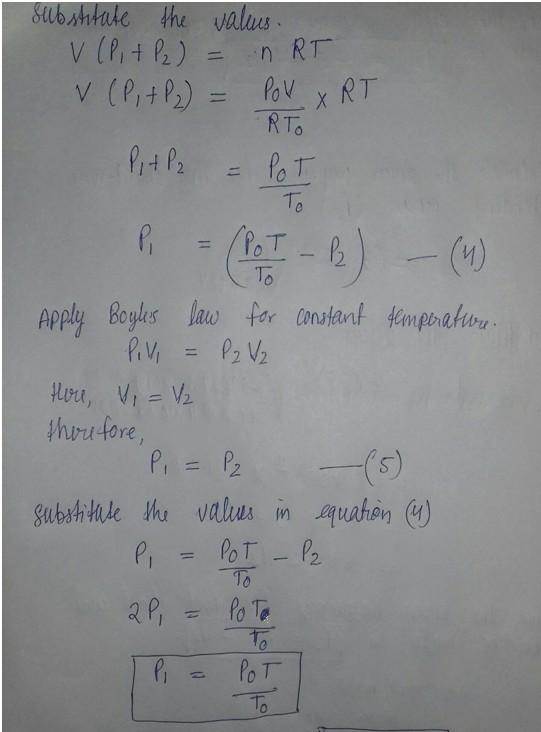 Substitute the values.
V (P₁ + P₂) = n RT
V (P₁+P₂) = P₀V / RT₀ × RT
P₁ + P₂ = P₀ T / T₀
P₁ = (P₀ T / T₀ − P₂) — (4)
Apply Boyles law for constant temperature.
P₁V₁ = P₂ V₂
Here, V₁ = V₂
therefore,
P₁ = P₂ —(5)
Substitute the values in equation (4)
P₁ = P₀T / T₀ − P₂
2P₁ = P₀ T₀ / T₀
P₁ = P₀ T / T₀